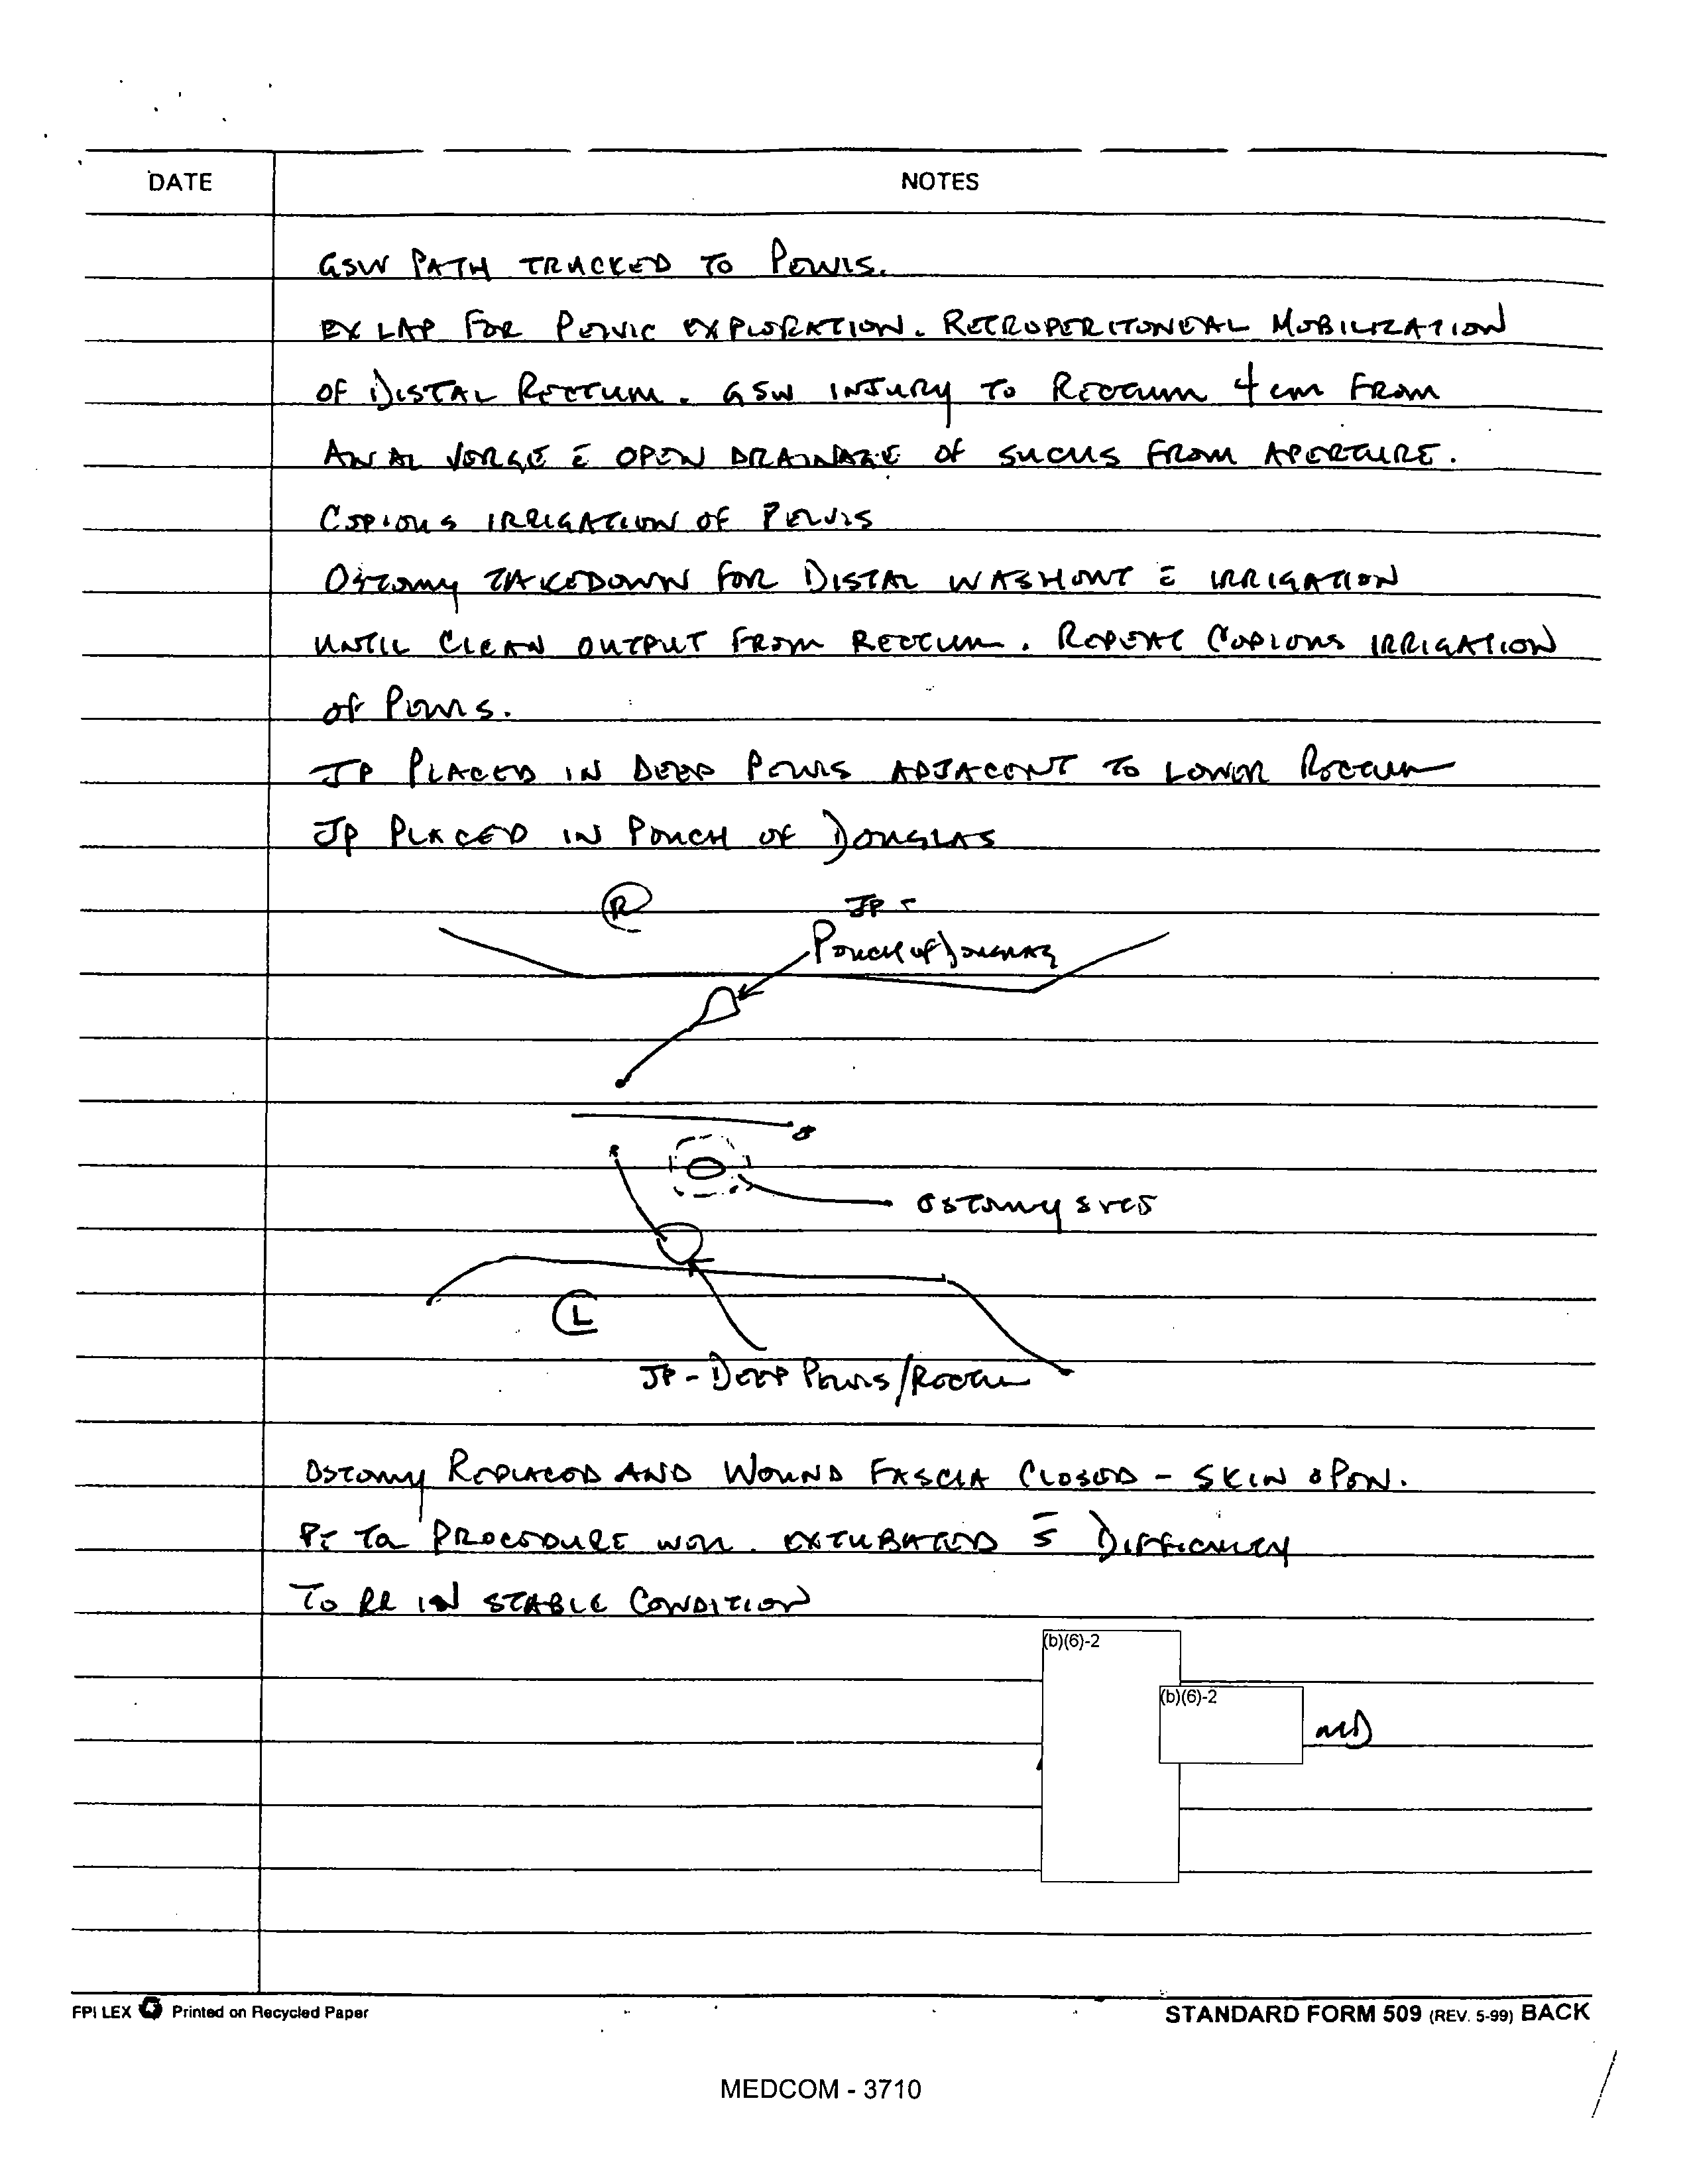 DATE NOTES
GSW PATH TRACKED TO PELVIS.
EX LAP FOR PELVIC EXPLORATION. RETROPERITONEAL MOBILIZATION
OF DISTAL RECTUM. GSW INJURY TO RECTUM 4 cm FROM
ANAL VERGE c̄ OPEN DRAINAGE OF SUCUS FROM APERTURE.
COPIOUS IRRIGATION OF PELVIS
OSTOMY TAKEDOWN FOR DISTAL WASHOUT c̄ IRRIGATION
UNTIL CLEAN OUTPUT FROM RECTUM. REPEAT COPIOUS IRRIGATION
OF PELVIS.
JP PLACED IN DEEP PELVIS ADJACENT TO LOWER RECTUM
JP PLACED IN POUCH OF DOUGLAS
R JP -
POUCH OF DOUGLAS
OSTOMY SITE
L
JP - DEEP PELVIS/RECTUM
OSTOMY REPLACED AND WOUND FASCIA CLOSED - SKIN OPEN.
PT TOL PROCEDURE WELL. EXTUBATED s̄ DIFFICULTY
TO RR IN STABLE CONDITION
(b)(6)-2
(b)(6)-2
MD
FPI LEX Printed on Recycled Paper STANDARD FORM 509 (REV. 5-99) BACK
MEDCOM - 3710